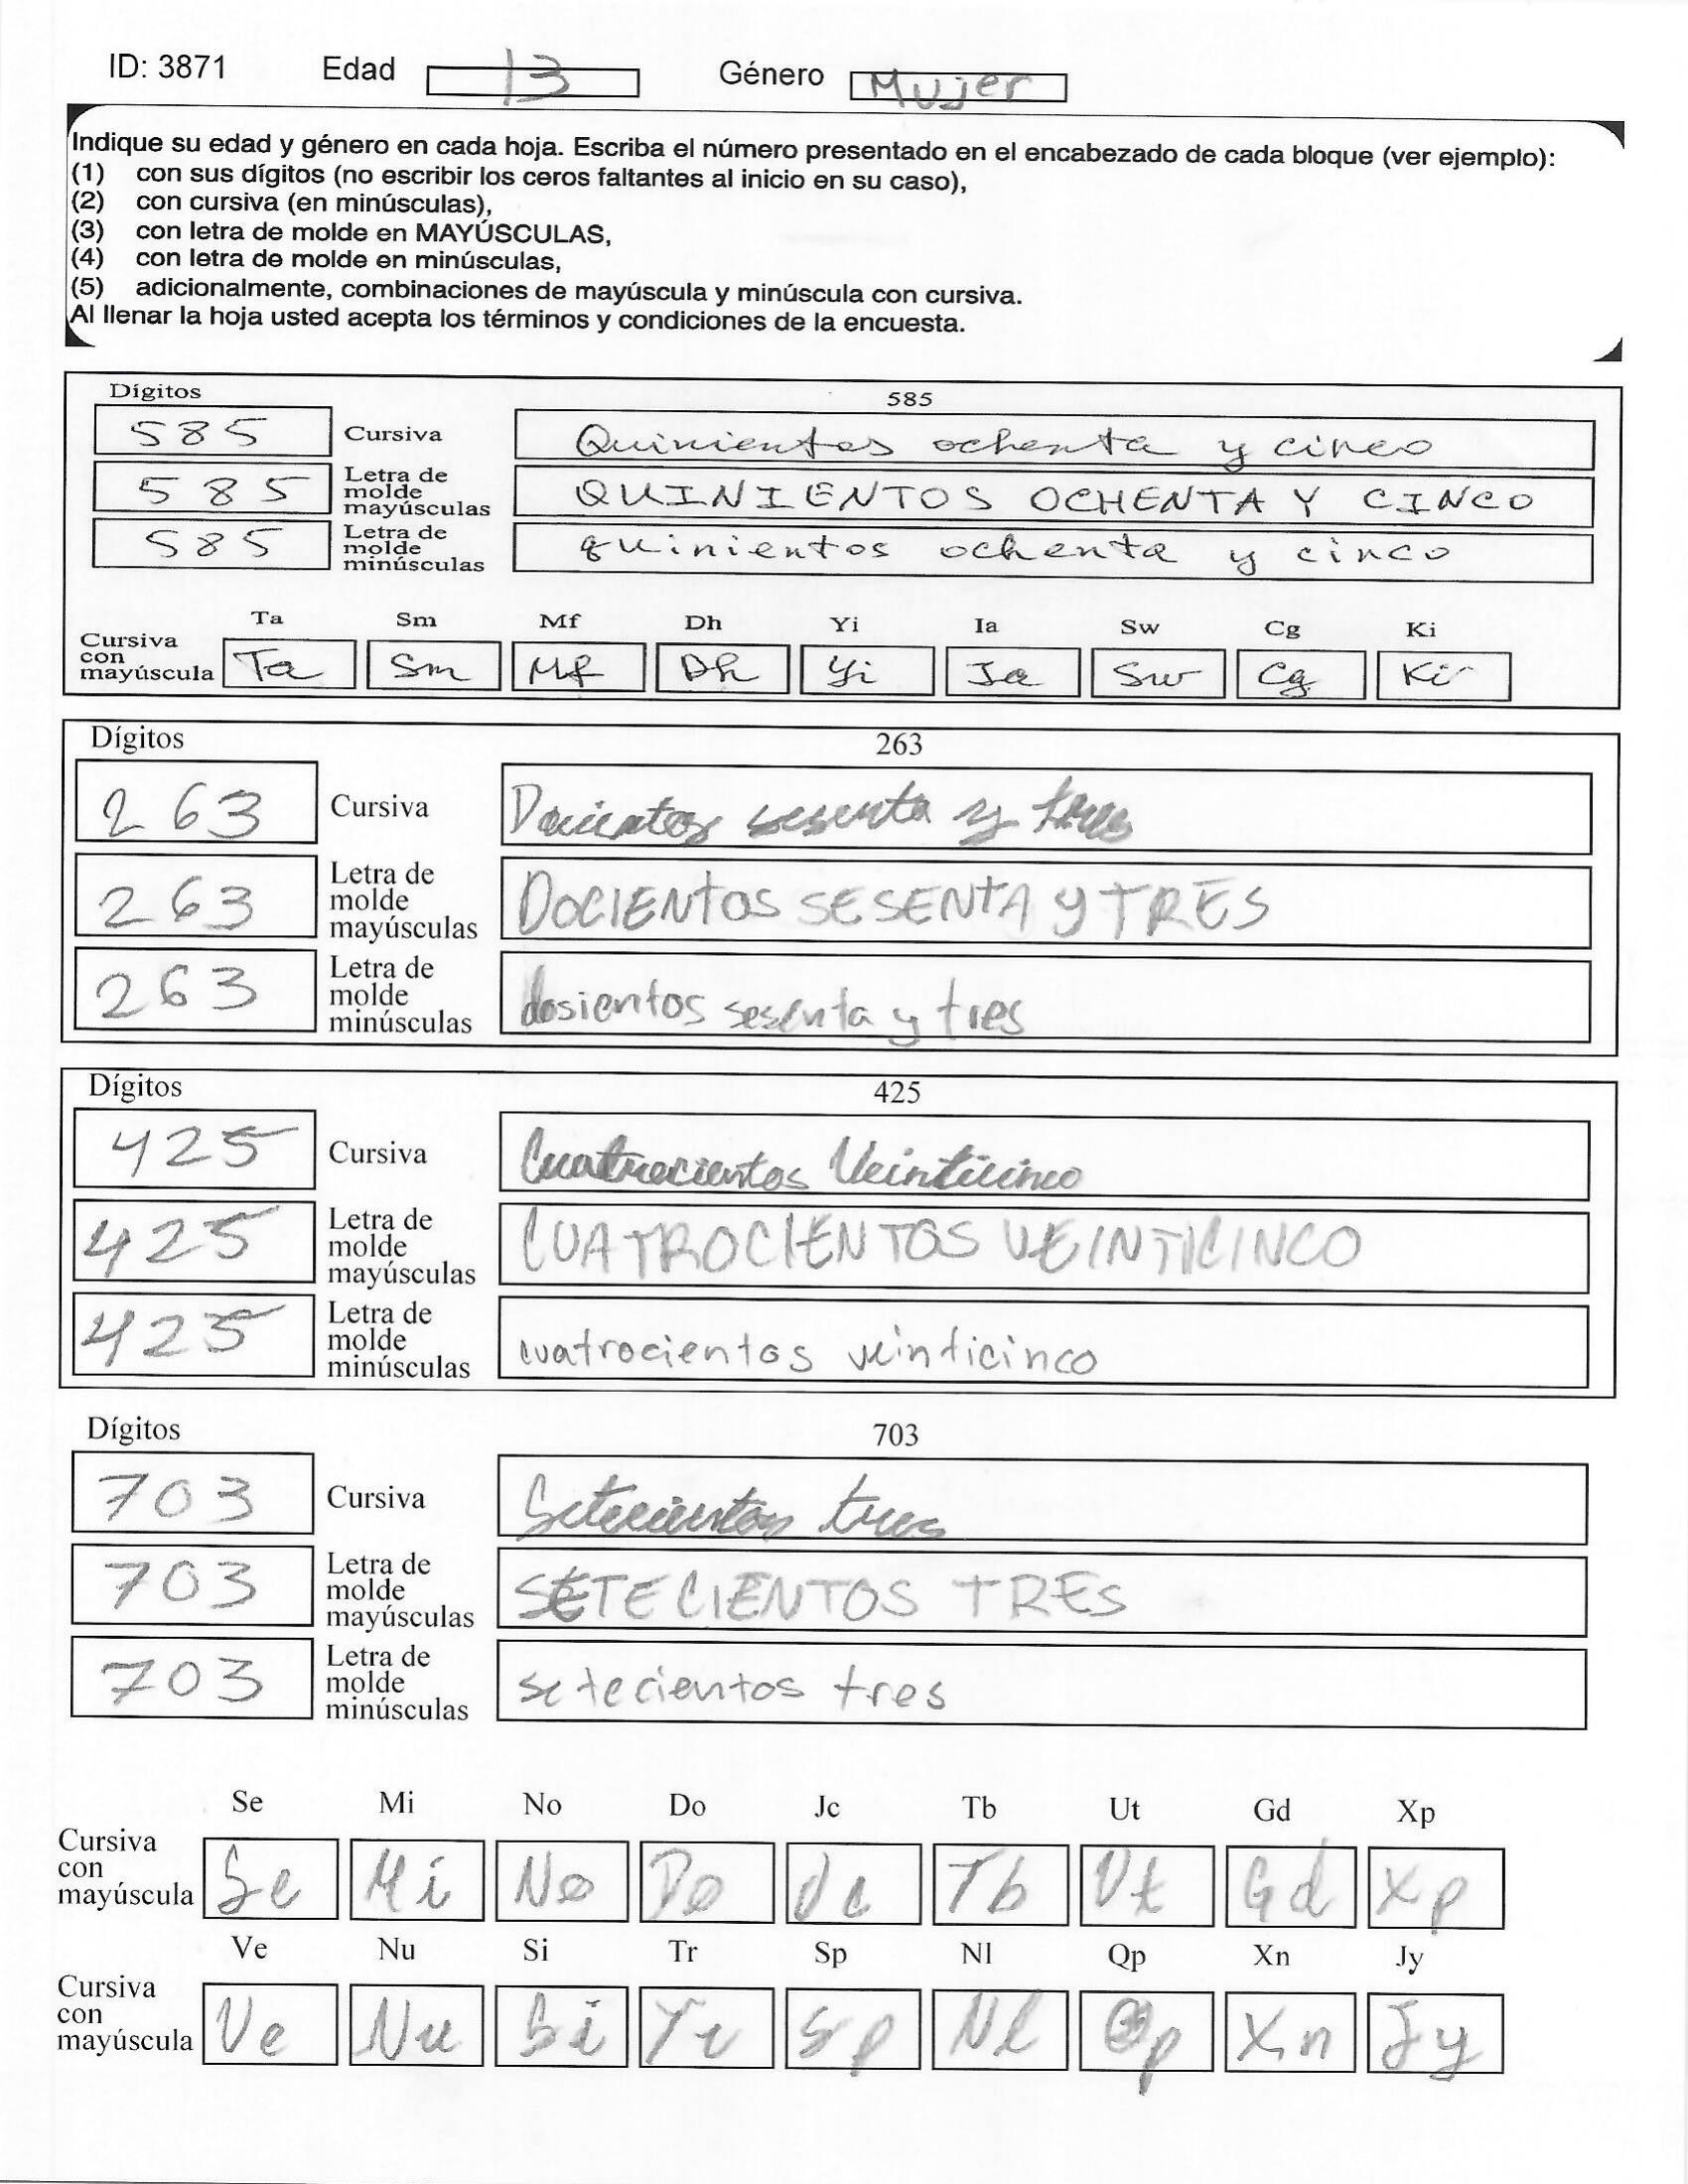 ID: 3871 Edad 13 Género Mujer
Indique su edad y género en cada hoja. Escriba el número presentado en el encabezado de cada bloque (ver ejemplo):
(1) con sus dígitos (no escribir los ceros faltantes al inicio en su caso),
(2) con cursiva (en minúsculas),
(3) con letra de molde en MAYÚSCULAS,
(4) con letra de molde en minúsculas,
(5) adicionalmente, combinaciones de mayúscula y minúscula con cursiva.
Al llenar la hoja usted acepta los términos y condiciones de la encuesta.
Dígitos 585
585 Cursiva Quinientos ochenta y cinco
585 Letra de molde mayúsculas QUINIENTOS OCHENTA Y CINCO
585 Letra de molde minúsculas quinientos ochenta y cinco
Ta Sm Mf Dh Yi Ia Sw Cg Ki
Cursiva con mayúscula Ta Sm Mf Dh Yi Ia Sw Cg Ki
Dígitos 263
263 Cursiva Docientos sesenta y tres
263 Letra de molde mayúsculas DOCIENtOS SESENTA y TRES
263 Letra de molde minúsculas dosientos sesenta y tres
Dígitos 425
425 Cursiva Cuatrocientos Veinticinco
425 Letra de molde mayúsculas CUATROCIENTOS VEINTICINCO
425 Letra de molde minúsculas cuatrocientos veinticinco
Dígitos 703
703 Cursiva Setecientos tres
703 Letra de molde mayúsculas SETECIENTOS TRES
703 Letra de molde minúsculas setecientos tres
Se Mi No Do Jc Tb Ut Gd Xp
Cursiva con mayúscula Se Mi No Do Jc Tb Ut Gd Xp
Ve Nu Si Tr Sp Nl Qp Xn Jy
Cursiva con mayúscula Ve Nu Si Tr Sp Nl Qp Xn Jy